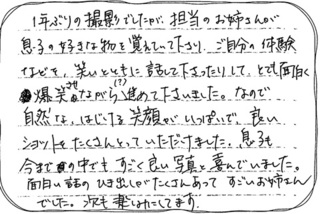 1年ぶりの撮影でしたが、担当のお姉さんが
息子の好きな物を覚えていて下さり、ご自分の体験
などを、笑いとともに話して下さったりして、とても面白く
爆笑させながら(?)進めて下さいました。なので
自然な、はじける笑顔がいっぱいで、良い
ショットをたくさんとっていただけました。息子も
今までの中でもすごく良い写真と喜んでいました。
面白い話のひき出しがたくさんあってすごいお姉さん
でした。次も楽しみにしてます。